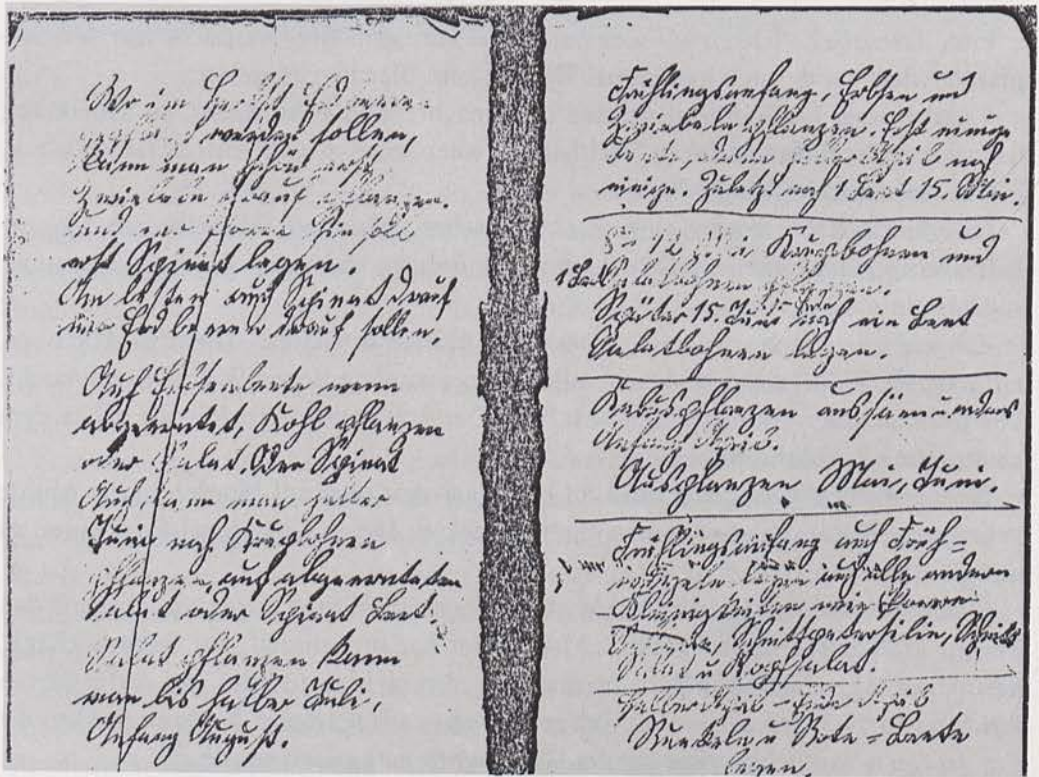 Wo im Herbst Erdbeeren
gepflanzt werden sollen,
kann man schon erst
Zwiebeln drauf pflanzen.
erst Spinat legen.
Am besten auch Spinat drauf
wo Erdbeeren drauf sollen
Auf Erbsenbeete wenn
abgeerntet, Kohl pflanzen
oder Salat. Oder Spinat
Auch kann man halber
Juni noch Krupbohnen
pflanzen auf abgeernteten
Salat oder Spinat Beet.
Salat pflanzen kann
man bis halber Juli,
Anfang August.
Frühlingsanfang, Erbsen und
Zwiebeln pflanzen. Erst einige
Beete, dann halber April noch
einige. Zuletzt noch 1 Beet 15. Mai.
Krupbohnen und
1 Beet Salatbohnen pflanzen.
Später 15 Juni noch ein Beet
Salatbohnen legen.
Kabuspflanzen aussäen u. anders
Anfang April.
Auspflanzen Mai, Juni.
Frühlingsanfang auch Früh=
legen auch alle andern
Kleinigkeiten wie Porree
Schnittpetersilie, Schnitt
Salat u Kopfsalat.
Halber April - Ende April
Runkeln u Rote=Beete
legen.